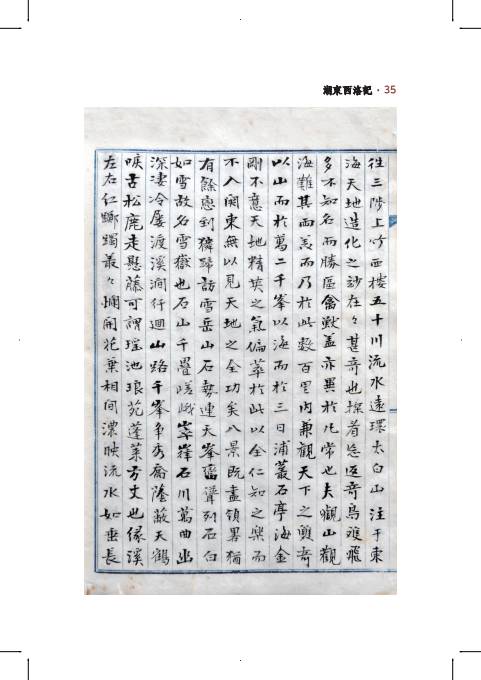 湖東西洛記 · 35
往三陟上竹西楼五十川流水遠環太白山注于東
海天地造化之玅在々甚奇也探者忘返奇鳥飛
多不知名而勝區禽獸盖亦異於凡常也夫觀山觀
海難其兩美而乃於此數百里內兼觀天下之奇
以山而於萬二千峯以海而於三日浦叢石亭海金
剛不意天地精英之氣偏萃於此以全仁知之樂而
不入関東無以見天地之全功矣八景既盡領畧猶
有餘到蹄訪雪岳山石勢連天峯巒列石白
如雪故名雪嶽也石山千疊嵯峨石川萬曲幽
深凄冷屡渡溪澗行廻山路千峯争秀喬蔭蔽天鶴
唳古松鹿走懸藤可謂瑶池琅苑蓬莱方丈也缘溪
左右躑躅叢々爛開花葉相間濃映流水如垂長